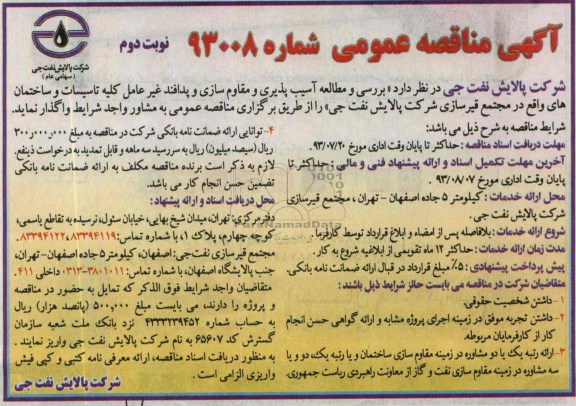 آگهی مناقصه عمومی شماره ۹۳۰۰۸ نوبت دوم
شرکت پالایش نفت جی
( سهامی عام )
شرکت پالایش نفت جی در نظر دارد « بررسی و مطالعه آسیب پذیری و مقاوم سازی و پدافند غیر عامل کلیه تاسیسات و ساختمان
های واقع در مجتمع قیرسازی شرکت پالایش نفت جی» را از طریق برگزاری مناقصه عمومی به مشاور واجد شرایط واگذار نماید.
شرایط مناقصه به شرح ذیل می باشد:
مهلت دریافت اسناد مناقصه : حداکثر تا پایان وقت اداری مورخ ۹۳/۰۷/۲۰
آخرین مهلت تکمیل اسناد و ارائه پیشنهاد فنی و مالی : حداکثر تا
پایان وقت اداری مورخ ۹۳/۰۸/۰۷ .
محل ارائه خدمات : کیلومتر ۵ جاده اصفهان - تهران ، مجتمع قیرسازی
شرکت پالایش نفت جی.
شروع ارائه خدمات : بلافاصله پس از امضاء و ابلاغ قرارداد توسط کارفرما.
مدت زمان ارائه خدمات : حداکثر ۱۲ ماه تقویمی از ابلاغیه شروع به کار.
پیش پرداخت پیشنهادی : ۵٪ مبلغ قرارداد در قبال ارائه ضمانت نامه بانکی.
متقاضیان شرکت در مناقصه می بایست حائز شرایط ذیل باشند:
۱- داشتن شخصیت حقوقی.
۲- داشتن تجربه موفق در زمینه اجرای پروژه مشابه و ارائه گواهی حسن انجام
کار از کارفرمایان مربوطه.
۳- ارائه رتبه یک یا دو مشاوره در زمینه مقاوم سازی ساختمان و یا رتبه یک، دو و یا
سه مشاوره در زمینه مقاوم سازی نفت و گاز از معاونت راهبردی ریاست جمهوری.
۴- توانایی ارائه ضمانت نامه بانکی شرکت در مناقصه به مبلغ ۳۰۰,۰۰۰,۰۰۰
ریال (سیصد میلیون) ریال به سررسید سه ماهه و قابل تمدید به درخواست ذینفع.
لازم به ذکر است برنده مناقصه مکلف به ارائه ضمانت نامه بانکی
تضمین حسن انجام کار می باشد.
محل دریافت اسناد و ارائه پیشنهاد :
دفتر مرکزی: تهران، میدان شیخ بهایی، خیابان سئول، نرسیده به تقاطع یاسمی،
کوچه چهارم، پلاک ۱، با شماره تماس: ۸۸۳۳۹۴۱۱۹، ۸۸۳۳۹۴۱۲۲.
مجتمع قیرسازی نفت جی: اصفهان، کیلومتر ۵ جاده اصفهان - تهران،
جنب پالایشگاه اصفهان، با شماره تماس: ۳۸۰۱۰۱۱-۰۳۱۳ داخلی ۴۱۱.
متقاضیان واجد شرایط فوق الذکر که تمایل به حضور در مناقصه
و پروژه را دارند، می بایست مبلغ ۵۰۰,۰۰۰ (پانصد هزار) ریال
به حساب شماره ۴۳۳۳۳۳۹۴۵۲ نزد بانک ملت شعبه سازمان
گسترش کد ۶۵۶۰۷ به نام شرکت پالایش نفت جی واریز نمایند .
به منظور دریافت اسناد مناقصه، ارائه معرفی نامه کتبی و کپی فیش
واریزی الزامی است .
شرکت پالایش نفت جی
ParsNamadData